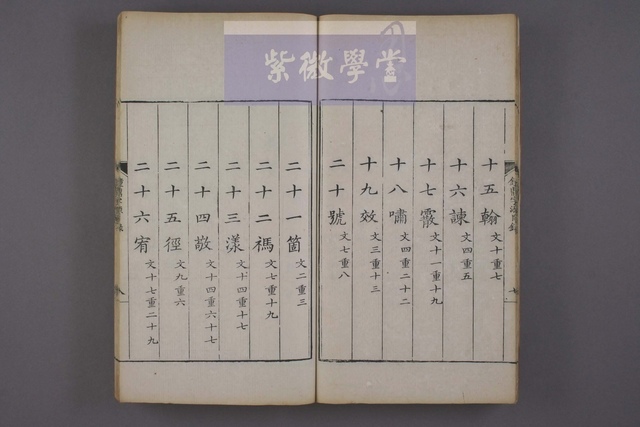 紫微學堂
十五翰 文十重七
十六諫 文四重五
十七霰 文十一重十九
十八嘯 文四重二十二
十九效 文三重十三
二十號 文七重八
二十一箇 文二重三
二十二禡 文七重十九
二十三漾 文十四重十七
二十四敬 文十四重六十七
二十五徑 文九重六
二十六宥 文十七重二十九